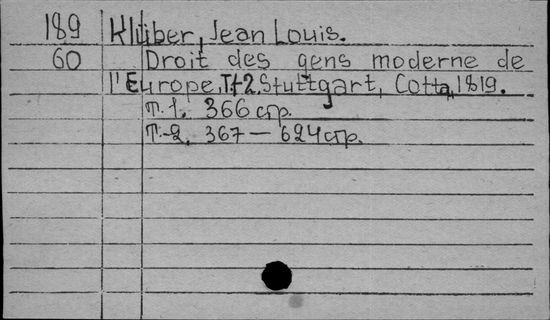 189 Klüber, Jean Louis.
60 Droit des gens moderne de
l'Europe, T.1-2. Stuttgart, Cotta, 1819.
Т. 1. 366 стр.
Т.-2. 367 — 624 стр.